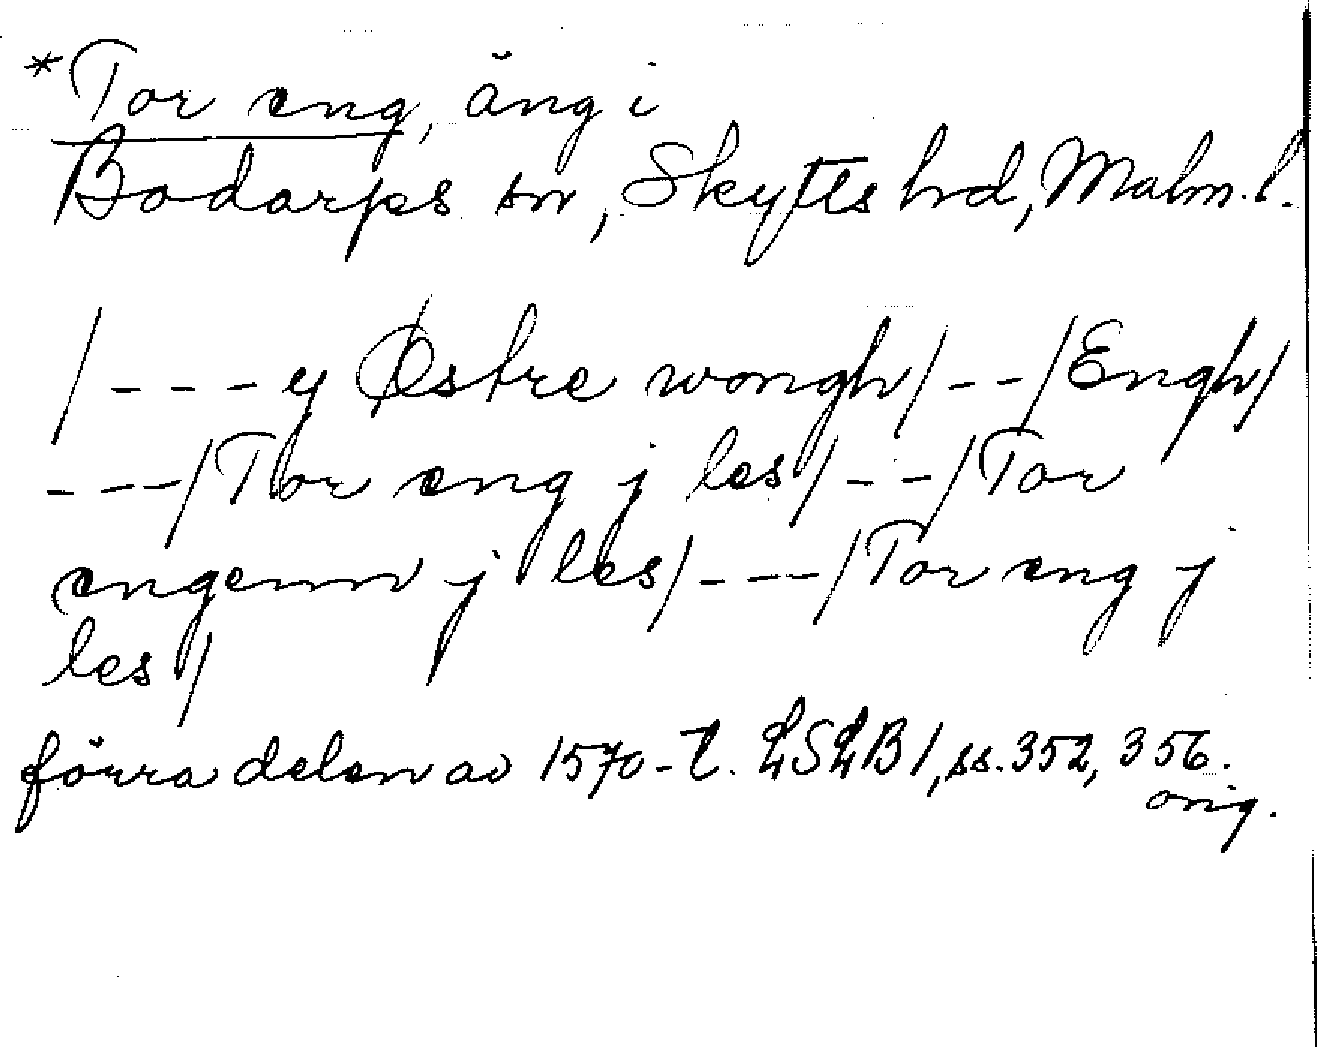 *Tor eng, äng i
Bodarps sn, Skytts hd, Malm. l.
/---y Østre wongh/--/Engh/
---/Tor eng j les/--/Tor
engenn j les/---/Tor eng j
les/
förra delen av 1570-t. LSLB 1, ss. 352, 356.
orig.